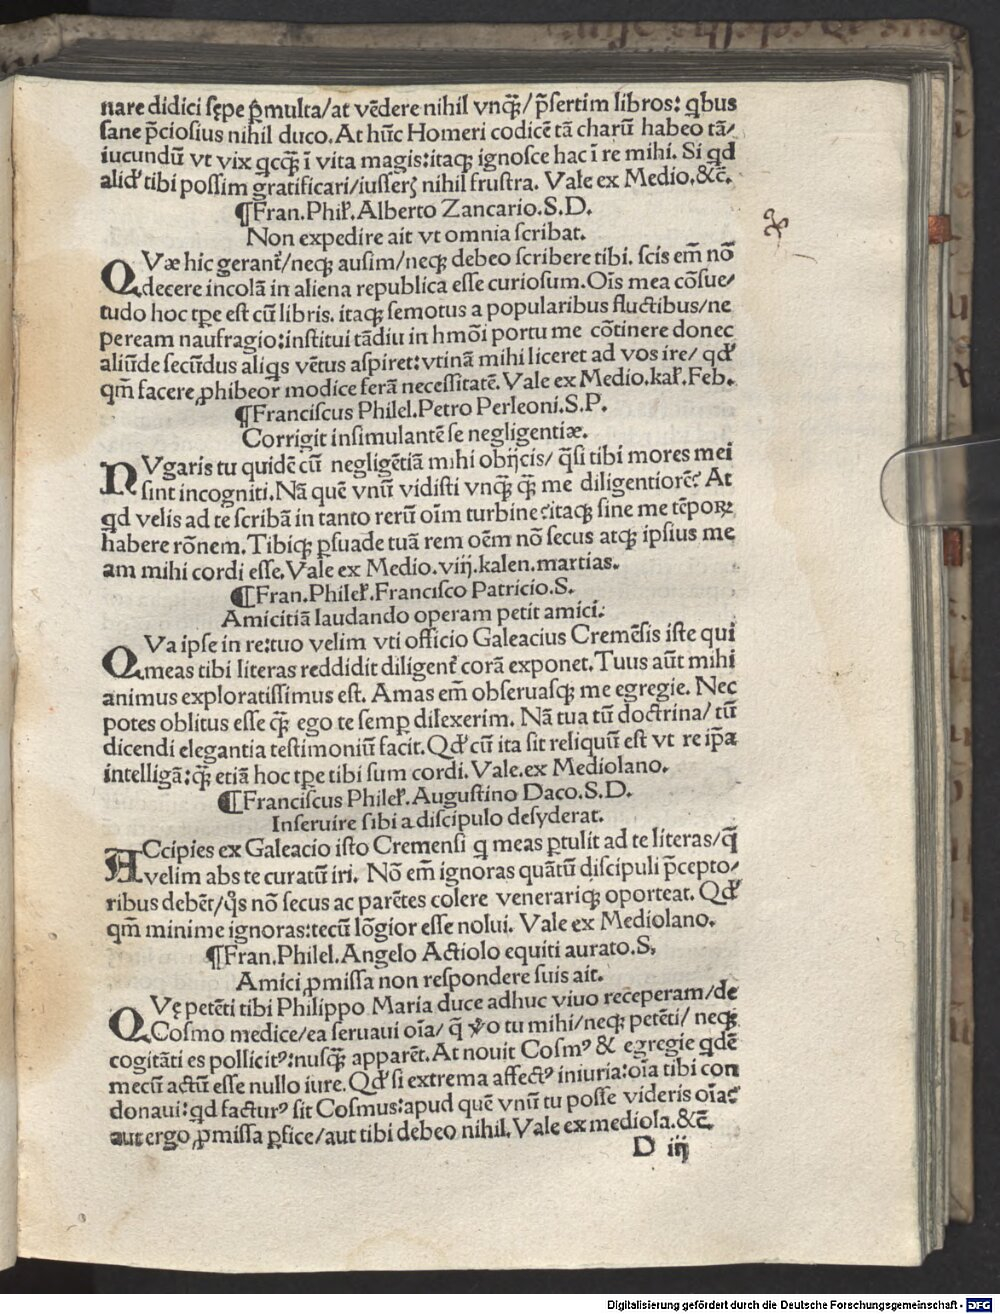 nare didici sępe p̄multa/at vēdere nihil vnqȝ̄/p̄sertim libros: qbus
sane p̄ciosius nihil duco. At hūc Homeri codicē tā charū habeo tā/
iucundū vt vix qcqȝ̄ ī vita magis:itaqȝ ignosce hac ī re mihi. Si qd
aliđ tibi possim gratificari/iusserꝭ nihil frustra. Vale ex Medio.&c̄.
¶Fran.Phił.Alberto Zancario.S.D.
Non expedire ait vt omnia scribat.
QVæ hic gerant᷑/neqȝ ausim/neqȝ debeo scribere tibi. scis em̄ nō
decere incolā in aliena republica esse curiosum. Oīs mea cōsue/
tudo hoc tꝑe est cū libris. itaqȝ semotus a popularibus fluctibus/ne
peream naufragio:institui tādiu in hmōi portu me cōtinere donec
aliūde secūdus aliqs vētus aspiret:vtinā mihi liceret ad vos ire/ qđ
qm̄ facere ꝓhibeor modice ferā necessitatē. Vale ex Medio.kał.Feb.
¶Franciscus Philel.Petro Perleoni.S.P.
Corrigit insimulantē se negligentiæ.
NVgaris tu quidē cū negligētiā mihi obijcis/ q̄si tibi mores mei
sint incogniti. Nā quē vnū vidisti vnqȝ̄ qȝ̄ me diligentiorē? At
qd velis ad te scribā in tanto rerū oīm turbine?itaqȝ sine me tēpoꝝ
habere rōnem. Tibiqȝ ꝑsuade tuā rem oēm nō secus atqȝ ipsius me
am mihi cordi esse. Vale ex Medio.viij.kalen.martias.
¶Fran.Phileł.Francisco Patricio.S.
Amicitiā laudando operam petit amici.
QVa ipse in re:tuo velim vti officio Galeacius Cremēsis iste qui
meas tibi literas reddidit diligent᷑ corā exponet. Tuus aūt mihi
animus exploratissimus est. Amas em̄ obseruasqȝ me egregie. Nec
potes oblitus esse qȝ̄ ego te semꝑ dilexerim. Nā tua tū doctrina/ tū
dicendi elegantia testimoniū facit. Qđ cū ita sit reliquū est vt re ip̄a
intelligā:qȝ̄ etiā hoc tꝑe tibi sum cordi. Vale.ex Mediolano.
¶Franciscus Phileł.Augustino Daco.S.D.
Inseruire sibi a discipulo desyderat.
ACcipies ex Galeacio isto Cremensi q meas ꝑtulit ad te literas/q̄
velim abs te curatū iri. Nō em̄ ignoras quātū discipuli p̄cepto/
ribus debēt/qͥs nō secus ac parētes colere venerariqȝ oporteat. Qđ
qm̄ minime ignoras:tecū lōgior esse nolui. Vale ex Mediolano.
¶Fran.Philel.Angelo Actiolo equiti aurato.S.
Amici ꝓmissa non respondere suis ait.
QVę petēti tibi Philippo Maria duce adhuc viuo receperam/de
Cosmo medice/ea seruaui oīa/ q̄ v̊o tu mihi/neqȝ petēti/ neqȝ
cogitāti es pollicitꝰ:nusqȝ̄ apparēt. At nouit Cosmꝰ & egregie qdē
mecū actū esse nullo iure. Qđ si extrema affectꝰ iniuria:oīa tibi con
donaui:qd facturꝰ sit Cosmus:apud quē vnū tu posse videris oīa?
aut ergo ꝓmissa ꝑfice/aut tibi debeo nihil. Vale ex mediola.&c̄.
D iij
Digitalisierung gefördert durch die Deutsche Forschungsgemeinschaft - DFG